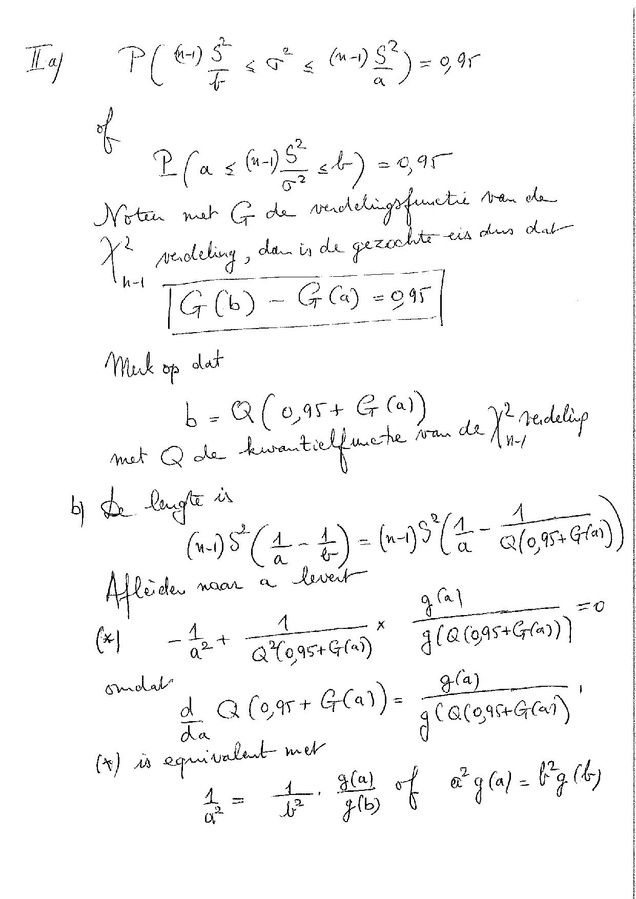 II a) P( (n-1) S²/b ≤ σ² ≤ (n-1) S²/a ) = 0,95
of
P( a ≤ (n-1) S²/σ² ≤ b ) = 0,95
Noteer met G de verdelingsfunctie van de
χ²ₙ₋₁ verdeling, dan is de gezochte eis dus dat
G(b) - G(a) = 0,95
Merk op dat
b = Q(0,95 + G(a))
met Q de kwantielfunctie van de χ²ₙ₋₁ verdeling
b) De lengte is
(n-1) S² (1/a - 1/b) = (n-1) S² (1/a - 1/Q(0,95+G(a)))
Afleiden naar a levert
(*) -1/a² + 1/Q²(0,95+G(a)) × g(a)/g(Q(0,95+G(a))) = 0
omdat
d/da Q(0,95 + G(a)) = g(a)/g(Q(0,95+G(a)) ,
(*) is equivalent met
1/a² = 1/b² · g(a)/g(b) of a² g(a) = b² g(b)